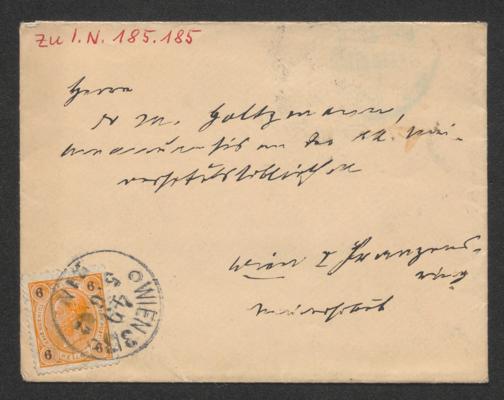 Zu I.N. 185.185
Herrn
Dr M. Holtzmann,
an der k.k. Uni-
versitätsbibliothek
Wien I Franzens-
ring
Universität
WIEN 3/
6 6
6 6